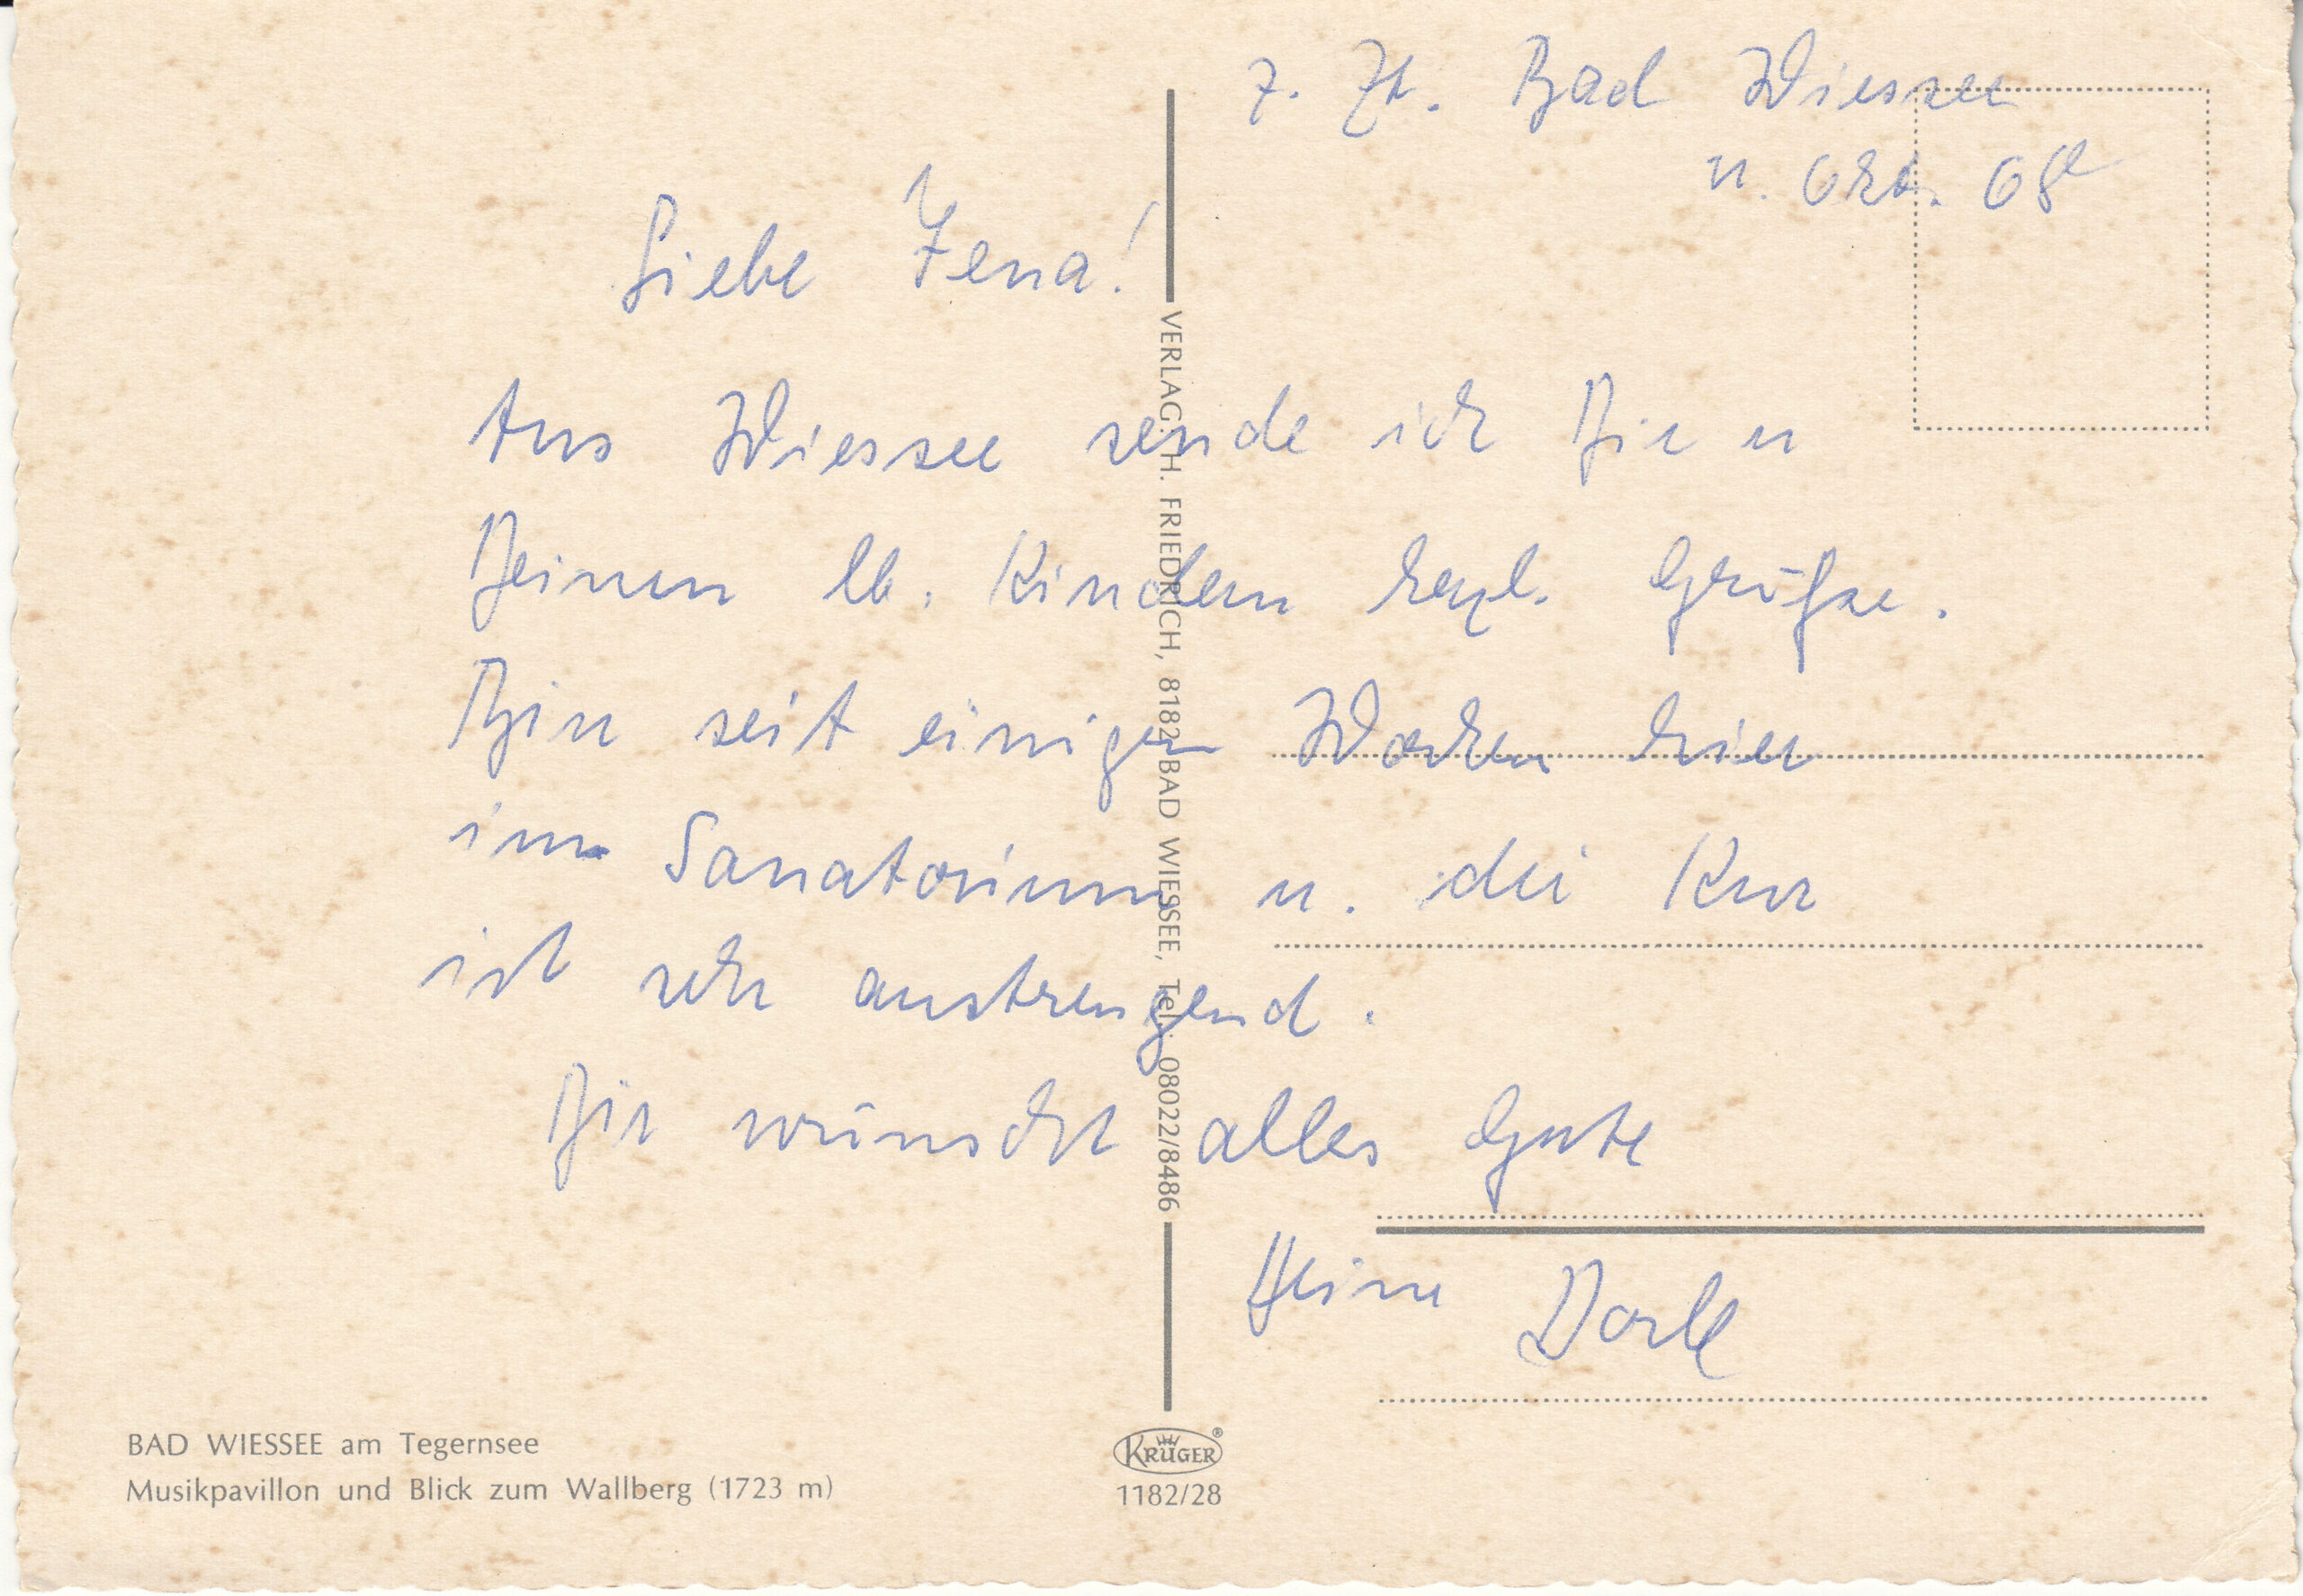 z. Zt. Bad Wiessee
11. Okt. 68
Liebe Jena!
Aus Wiessee sende ich Dir u
Deinen lb. Kindern herzl. Grüße.
Bin seit einigen Wochen hier
im Sanatorium u. die Kur
ist sehr anstrengend.
Dir wünscht alles Gute
Deine Dorle
VERLAG: H. FRIEDRICH, 8182 BAD WIESSEE, Tel.: 08022/8486
BAD WIESSEE am Tegernsee
Musikpavillon und Blick zum Wallberg (1723 m)
KRÜGER®
1182/28